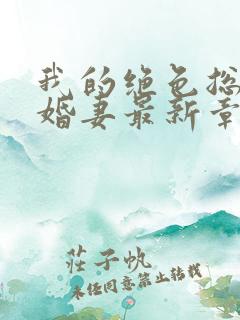 我的绝色总
婚妻最新章
莊子帆
未经同意禁止转载